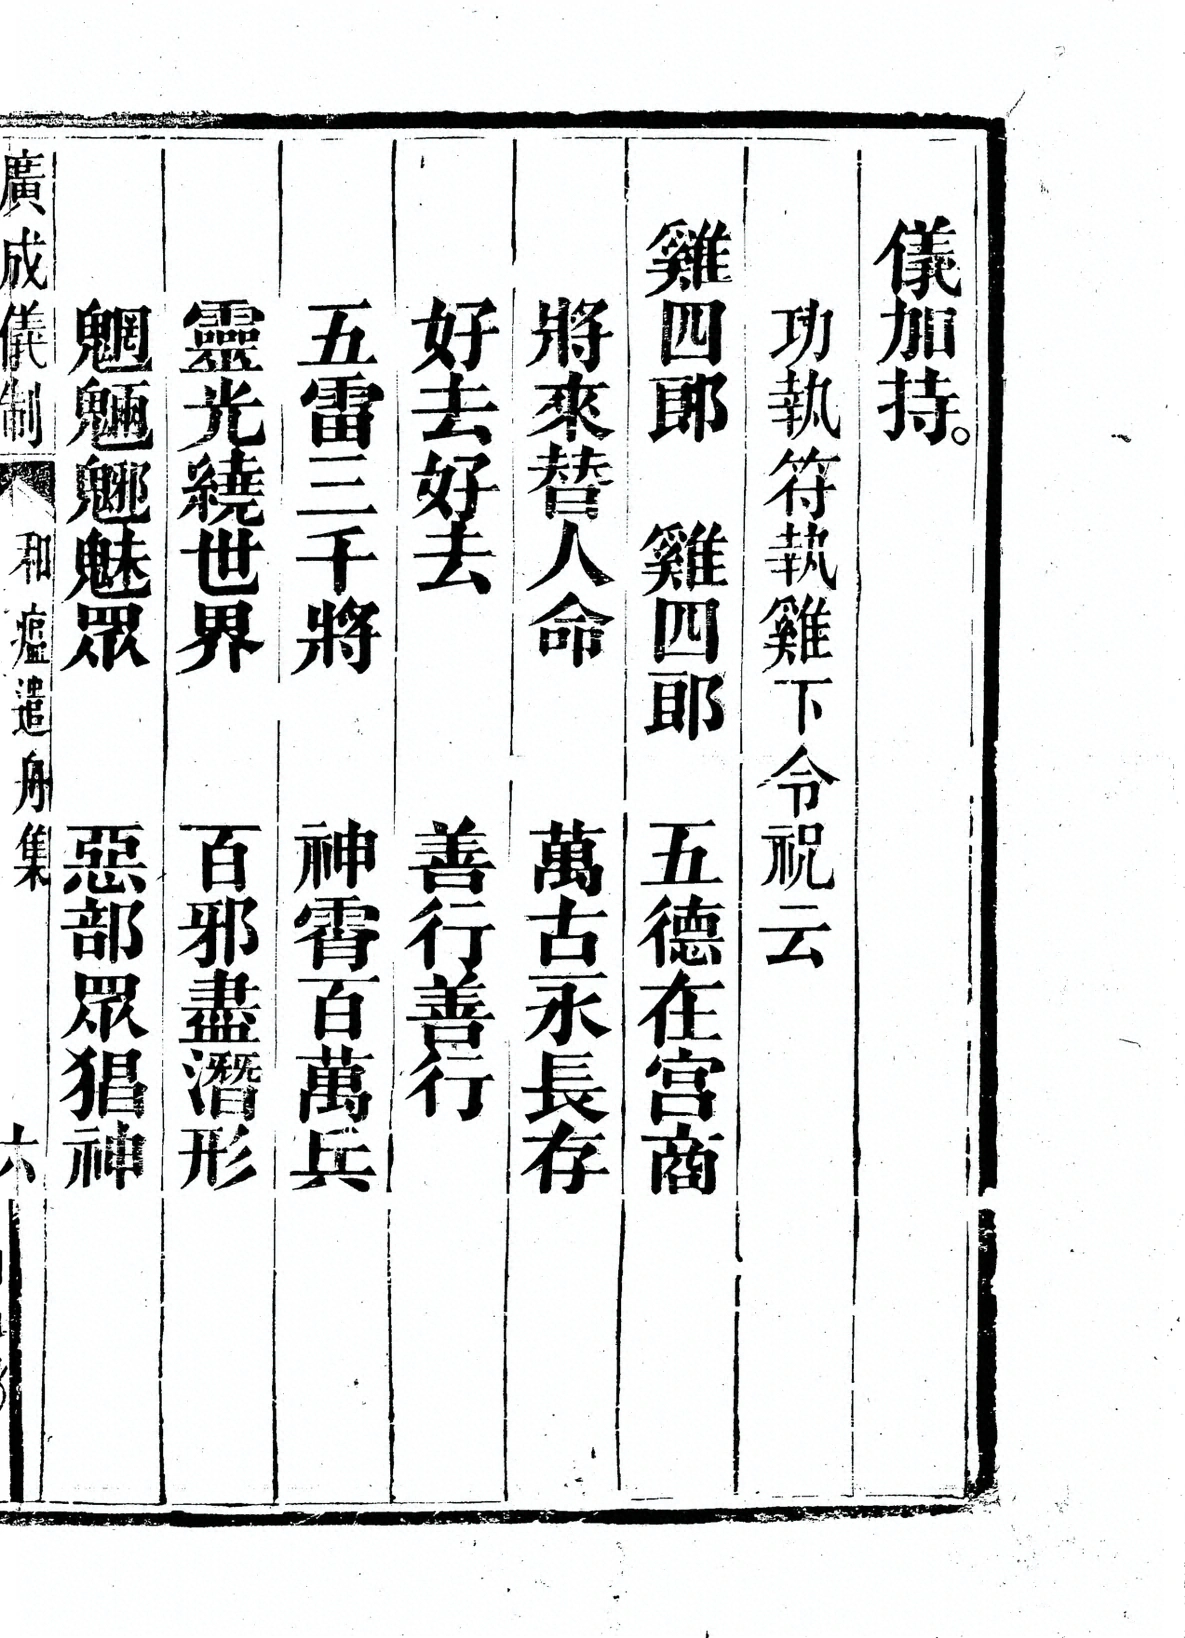 儀加持。
功執符執雞下令祝云
雞四郎　雞四郎　五德在宮商
將來替人命　萬古永長存
好去好去　善行善行
五雷三千將　神霄百萬兵
靈光繞世界　百邪盡潛形
魍魎魑魅眾　惡部眾猖神
廣成儀制　和瘟遣舟集　六